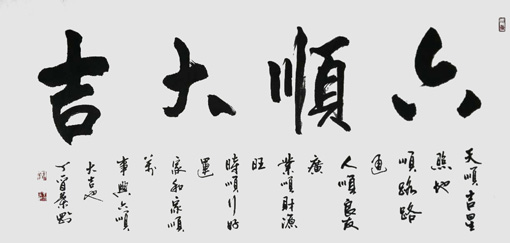 六順大吉
天順吉星
照地
順路路
通
人順良友
廣
業順財源
旺
時順行好
運
家和家順
萬
事興六順
大吉也
丁酉